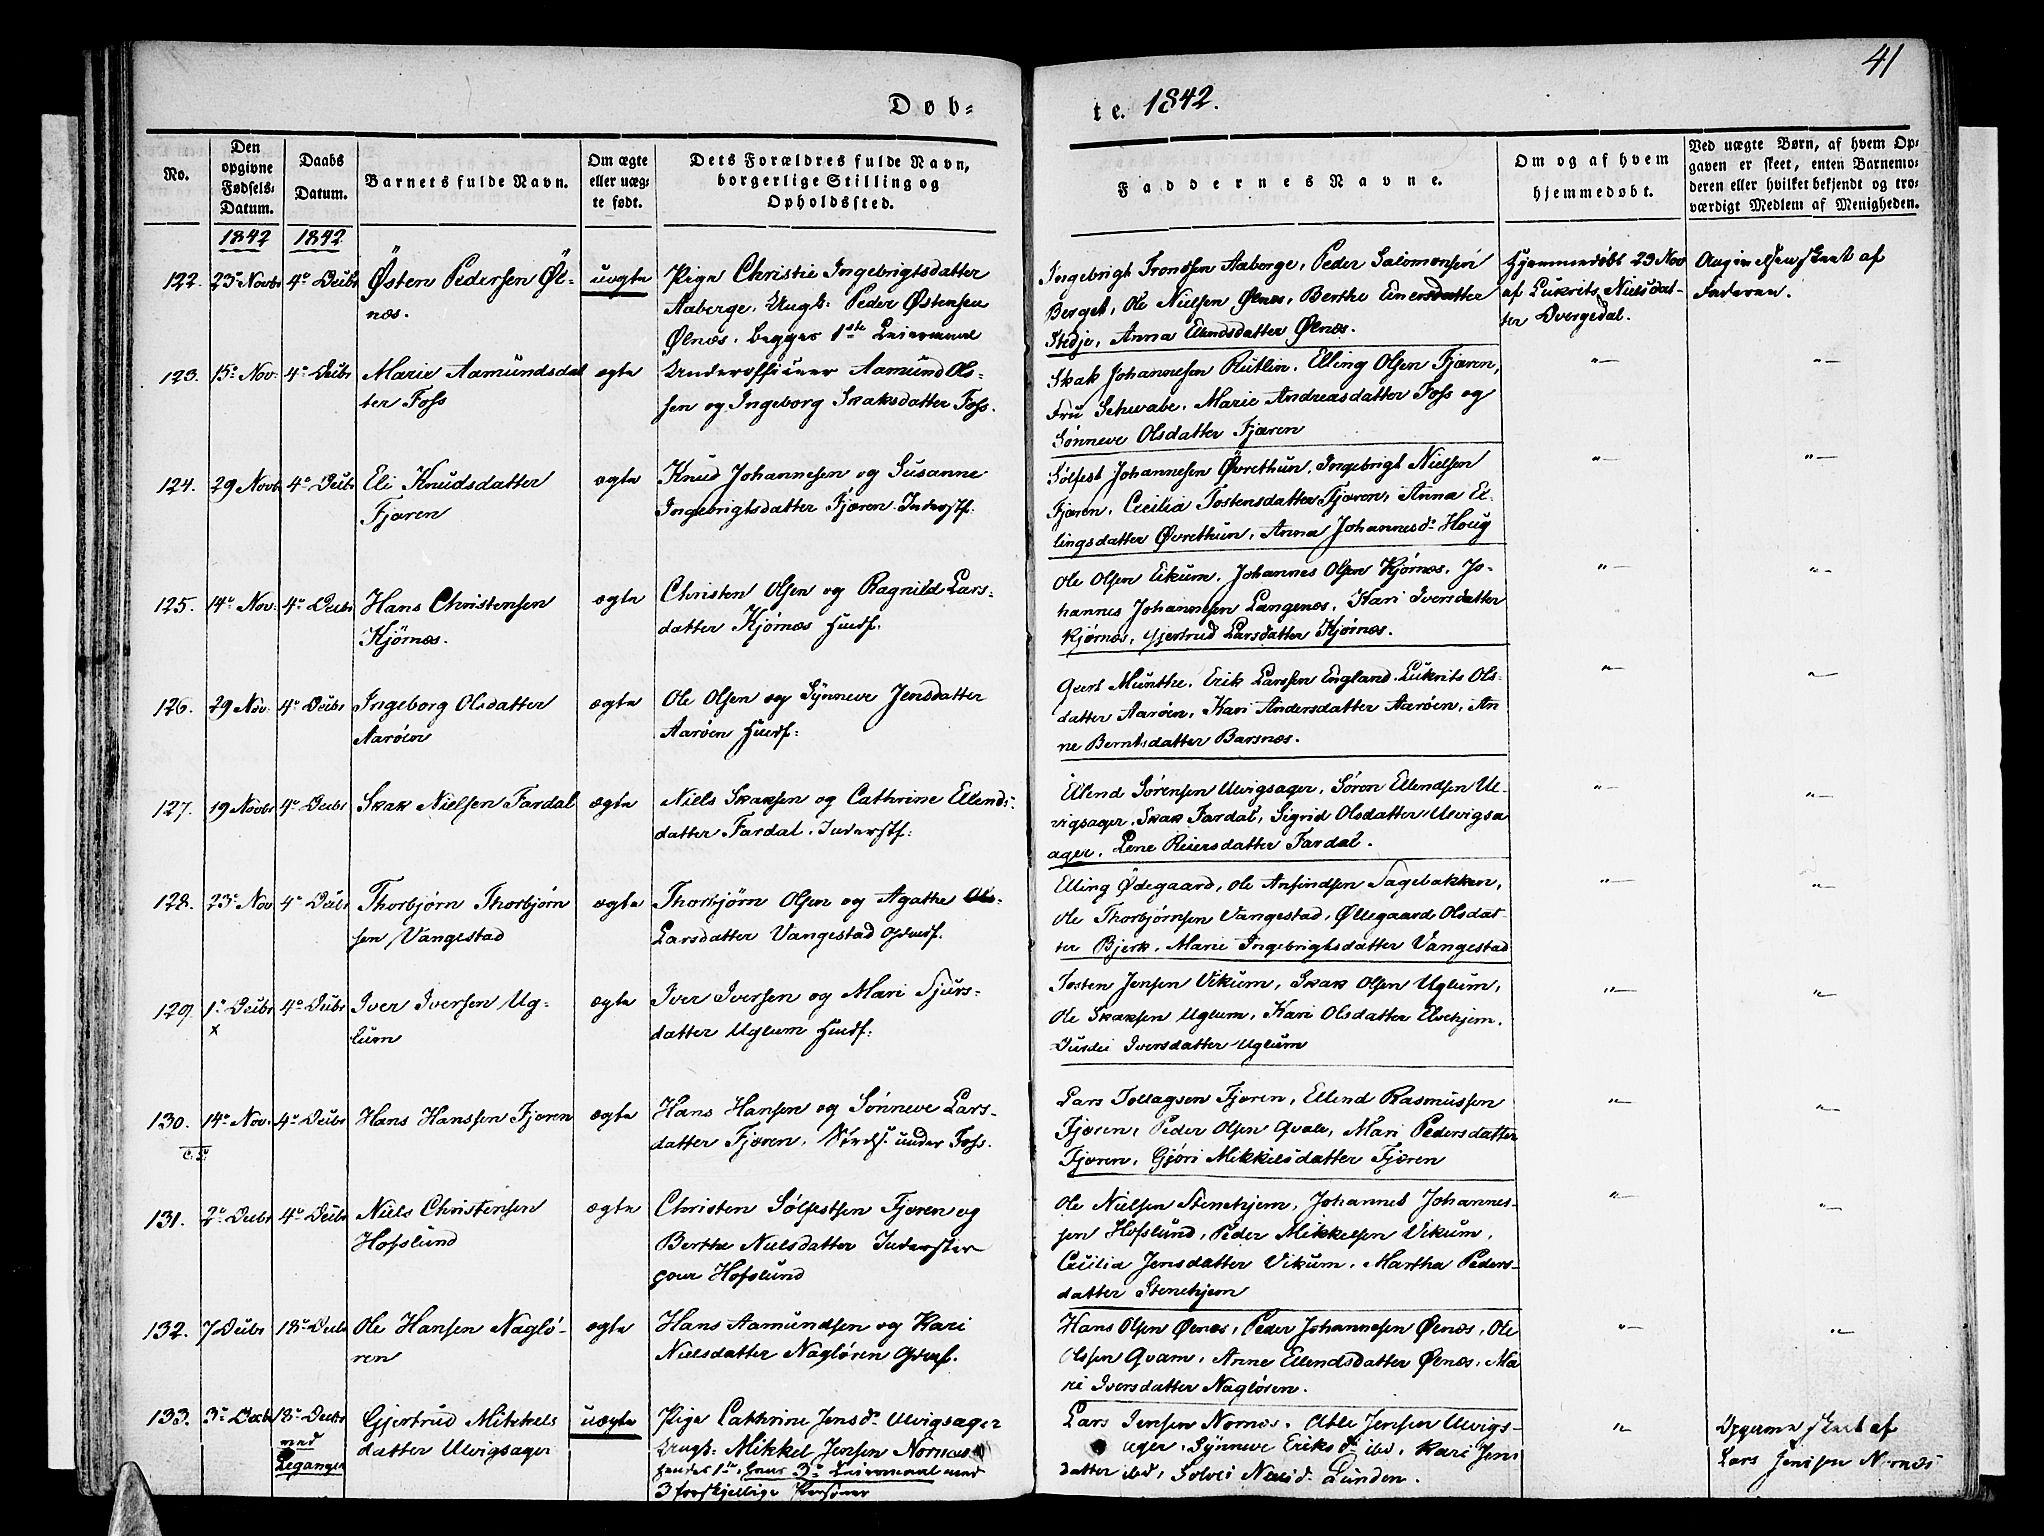 41
Døb-
te. 1842.
No.
Den
opgivne
Fødsels-
Datum.
Daabs
Datum.
Barnets fulde Navn.
Om ægte
eller uæg-
te født.
Dets Forældres fulde Navn,
borgerlige Stilling og
Opholdssted.
Faddernes Navne.
Om og af hvem
hjemmedøbt.
Ved uægte Børn, af hvem Op-
gaven er skeet, enten Barnemo-
deren eller hvilket bekjendt og tro-
værdigt Medlem af Menigheden.
1842 1842
122. 23 Novbr 4 Decbr Østen Pedersen Øl-
næs.
uægte
Pige Christie Ingebrigtsdatter
Aaberge. Ungk: Peder Østensen
Ølnæs. begges 1ste Leiermaal
Ingebrigt Trondsen Aaberge, Peder Salomonsen
Berget, Ole Nielsen Ølnæs, Berthe Einersdatter
Stedje, Anna Elendsdatter Ølnæs.
Hjemmedøbt 23 Nov
af Lukrits Nielsdat-
ter Dvergedal.
Angivelsen skeet af
Faderen.
123. 15 Nov. 4 Decbr Marie Aamundsdat
ter Foss
ægte
Underofficeer Aamund Ols-
sen og Ingeborg Skaksdatter Foss.
Skak Johannesen Rutlin. Elling Olsen Fjæren,
Fru Schwabe. Marie Andreasdatter Foss og
Sønneve Olsdatter Fjæren
"— "—
124. 29 Novbr 4 Decbr Eli Knudsdatter
Fjæren
ægte
Knud Johannesen og Susanne
Ingebrigtsdatter Fjæren. Inderstf.
Sølfest Johannesen Øvrethun. Ingebrigt Nielsen
Fjæren. Cecilia Tostensdatter Fjæren, Anna El-
lingsdatter Øvrethun, Anna Johannesd. Houg
"— "—
125. 14 Nov. 4 Decbr Hans Christensen
Kjørnæs.
ægte
Christen Olsen og Ragnild Lars-
datter Kjørnæs Huusf.
Ole Olsen Eikum. Johannes Olsen Kjørnæs. Jo-
hannes Johannesen Langenæs. Kari Iversdatter
Kjørnæs, Gjertrud Larsdatter Kjørnæs.
"— "—
126. 29 Nov. 4 Decbr Ingeborg Olsdatter
Aarøen
ægte
Ole Olsen og Synneve Jensdatter
Aarøen Huusf:
Geert Munthe. Erik Larssen England. Lukrits Ols-
datter Aarøen, Kari Andersdatter Aarøen, An
ne Berntsdatter Barsnæs.
"— "—
127. 19 Novbr 4 Decbr Skak Nielsen Fardal
ægte
Niels Skaksen og Cathrine Ellends-
datter Fardal. Inderstf:
Ellend Sørensen Ulvigsager, Søren Ellendsen Ul-
vigsager. Skak Fardal, Sigrid Olsdatter Ulvigsa
ager. Lene Reiersdatter Fardal.
"— "—
128. 23 Nov 4 Decbr Thorbjørn Thorbjørn
sen Vangestad
ægte
Thorbjørn Olsen og Agathe Ols-
Larsdatter Vangestad Gaardf.
Elling Ødegaard, Ole Anfindsen Sagebakken,
Ole Thorbjørnsen Vangestad, Øllegaard Olsdat-
ter Bjerk. Marie Ingebrigtsdatter Vangestad
"— "—
129. 1 Decbr 4 Decbr Iver Iversen Ug-
x
lum
ægte
Iver Iversen og Mari Sjurs-
datter Uglum Huusf:
Tosten Jensen Vikum, Skak Olsen Uglum,
Ole Skaksen Uglum, Kari Olsdatter Elvehjem.
Iversdatter Uglum
"— "—
130. 14 Nov. 4 Decbr Hans Hanssen Fjæren
ægte
Hans Hansen og Sønneve Lars-
datter Fjæren. under Foss.
Lars Tollagsen Fjæren, Ellend Rasmussen
Fjæren, Peder Olsen Qvale, Mari Pedersdatter
Fjæren, Gjøri Mikkelsdatter Fjæren
"— "—
131. 2 Decbr 4 Decbr Niels Christensen
Hofslund
ægte
Christen Sølfestsen Fjæren og
Berthe Nielsdatter Inderster
paa Hofslund
Ole Nielsen Stenehjem, Johannes Johannes-
sen Hofslund, Peder Mikkelsen Vikum,
Cecilia Jensdatter Vikum. Martha Peders-
datter Stenehjem
"— "—
132. 7 Decbr 18 Decbr Ole Hansen Nagló-
ren
ægte
Hans Aamundsen og Kari
Nielsdatter Nagløren Gaardf.
Hans Olsen Ølnæs, Peder Johannesen Ølnæs, Ole
Olssen Qvam, Anne Ellendsdatter Ølnæs, Ma
ri Iversdatter Nagløren.
"— "—
133. 3 Decbr 18 Decbr Gjertrud Mikkels
ved
Leganger
datter Ulvigsager
uægte
Pige Cathrine Jensd. Ulvigsager
Ungk: Mikkel Jensen Nornæs
hendes 1ste, hans 3die Leiermaal med
3 forskjellige Personer
Lars Jensen Nornæs. Able Jensen Ulvigs-
ager. Synneve Eriksd. ibd. Kari Jens
datter ibd, Solvei Nilsd. Lunden.
"—
Opgaven skeet af
Lars Jenssen Nornæs